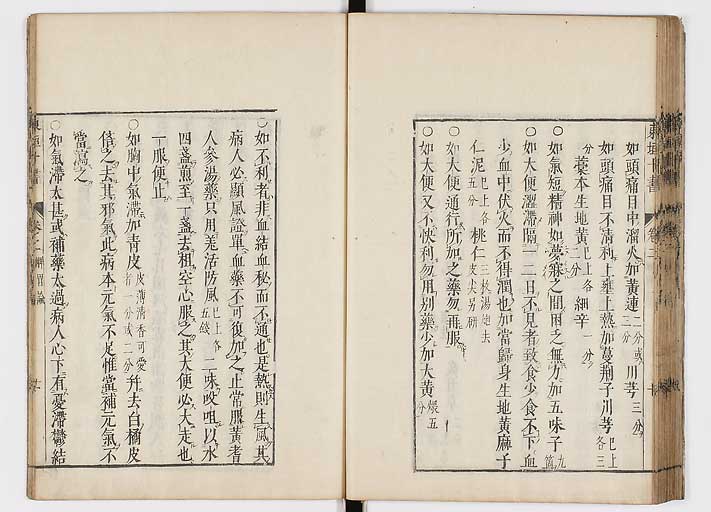 如頭痛目中溜火加黃連二分或三分川芎三分
如頭痛目不清利上壅上熱加蔓荆子川芎已上各三分
藁本生地黃已上各二分細辛一分
○如氣短精神如夢寐之間困乏無力加五味子九箇
○如大便澀滯隔一二日不見者致食少食不下血
少血中伏火而不得潤也加當歸身生地黃麻子
仁泥已上各五分桃仁三枚湯泡去皮尖另研
○如大便通行所加之藥勿再服
○如大便又不快利勿用別藥少加大黃煨五分
○如不利者非血結血秘而不通也是熱則生風其
病人必顯風證單血藥不可復加之止常服黃耆
人參湯藥只用羌活防風已上各五錢二味㕮咀以水
四盞煎至一盞去粗空心服之其大便必大走也
一服便止
○如胸中氣滯加青皮皮薄清香可愛者一分或二分并去白橘皮
倍之去其邪氣此病本元氣不足惟當補元氣不
當瀉之
○如氣滯太甚或補藥太過病人心下有憂滯鬱結